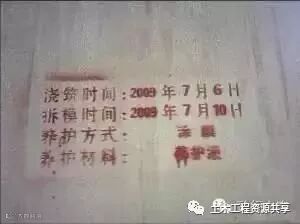 浇筑时间:2009年7月6日
拆模时间:2009年7月10日
养护方式: 涂膜
养护材料: 养护液
土木工程资源共享